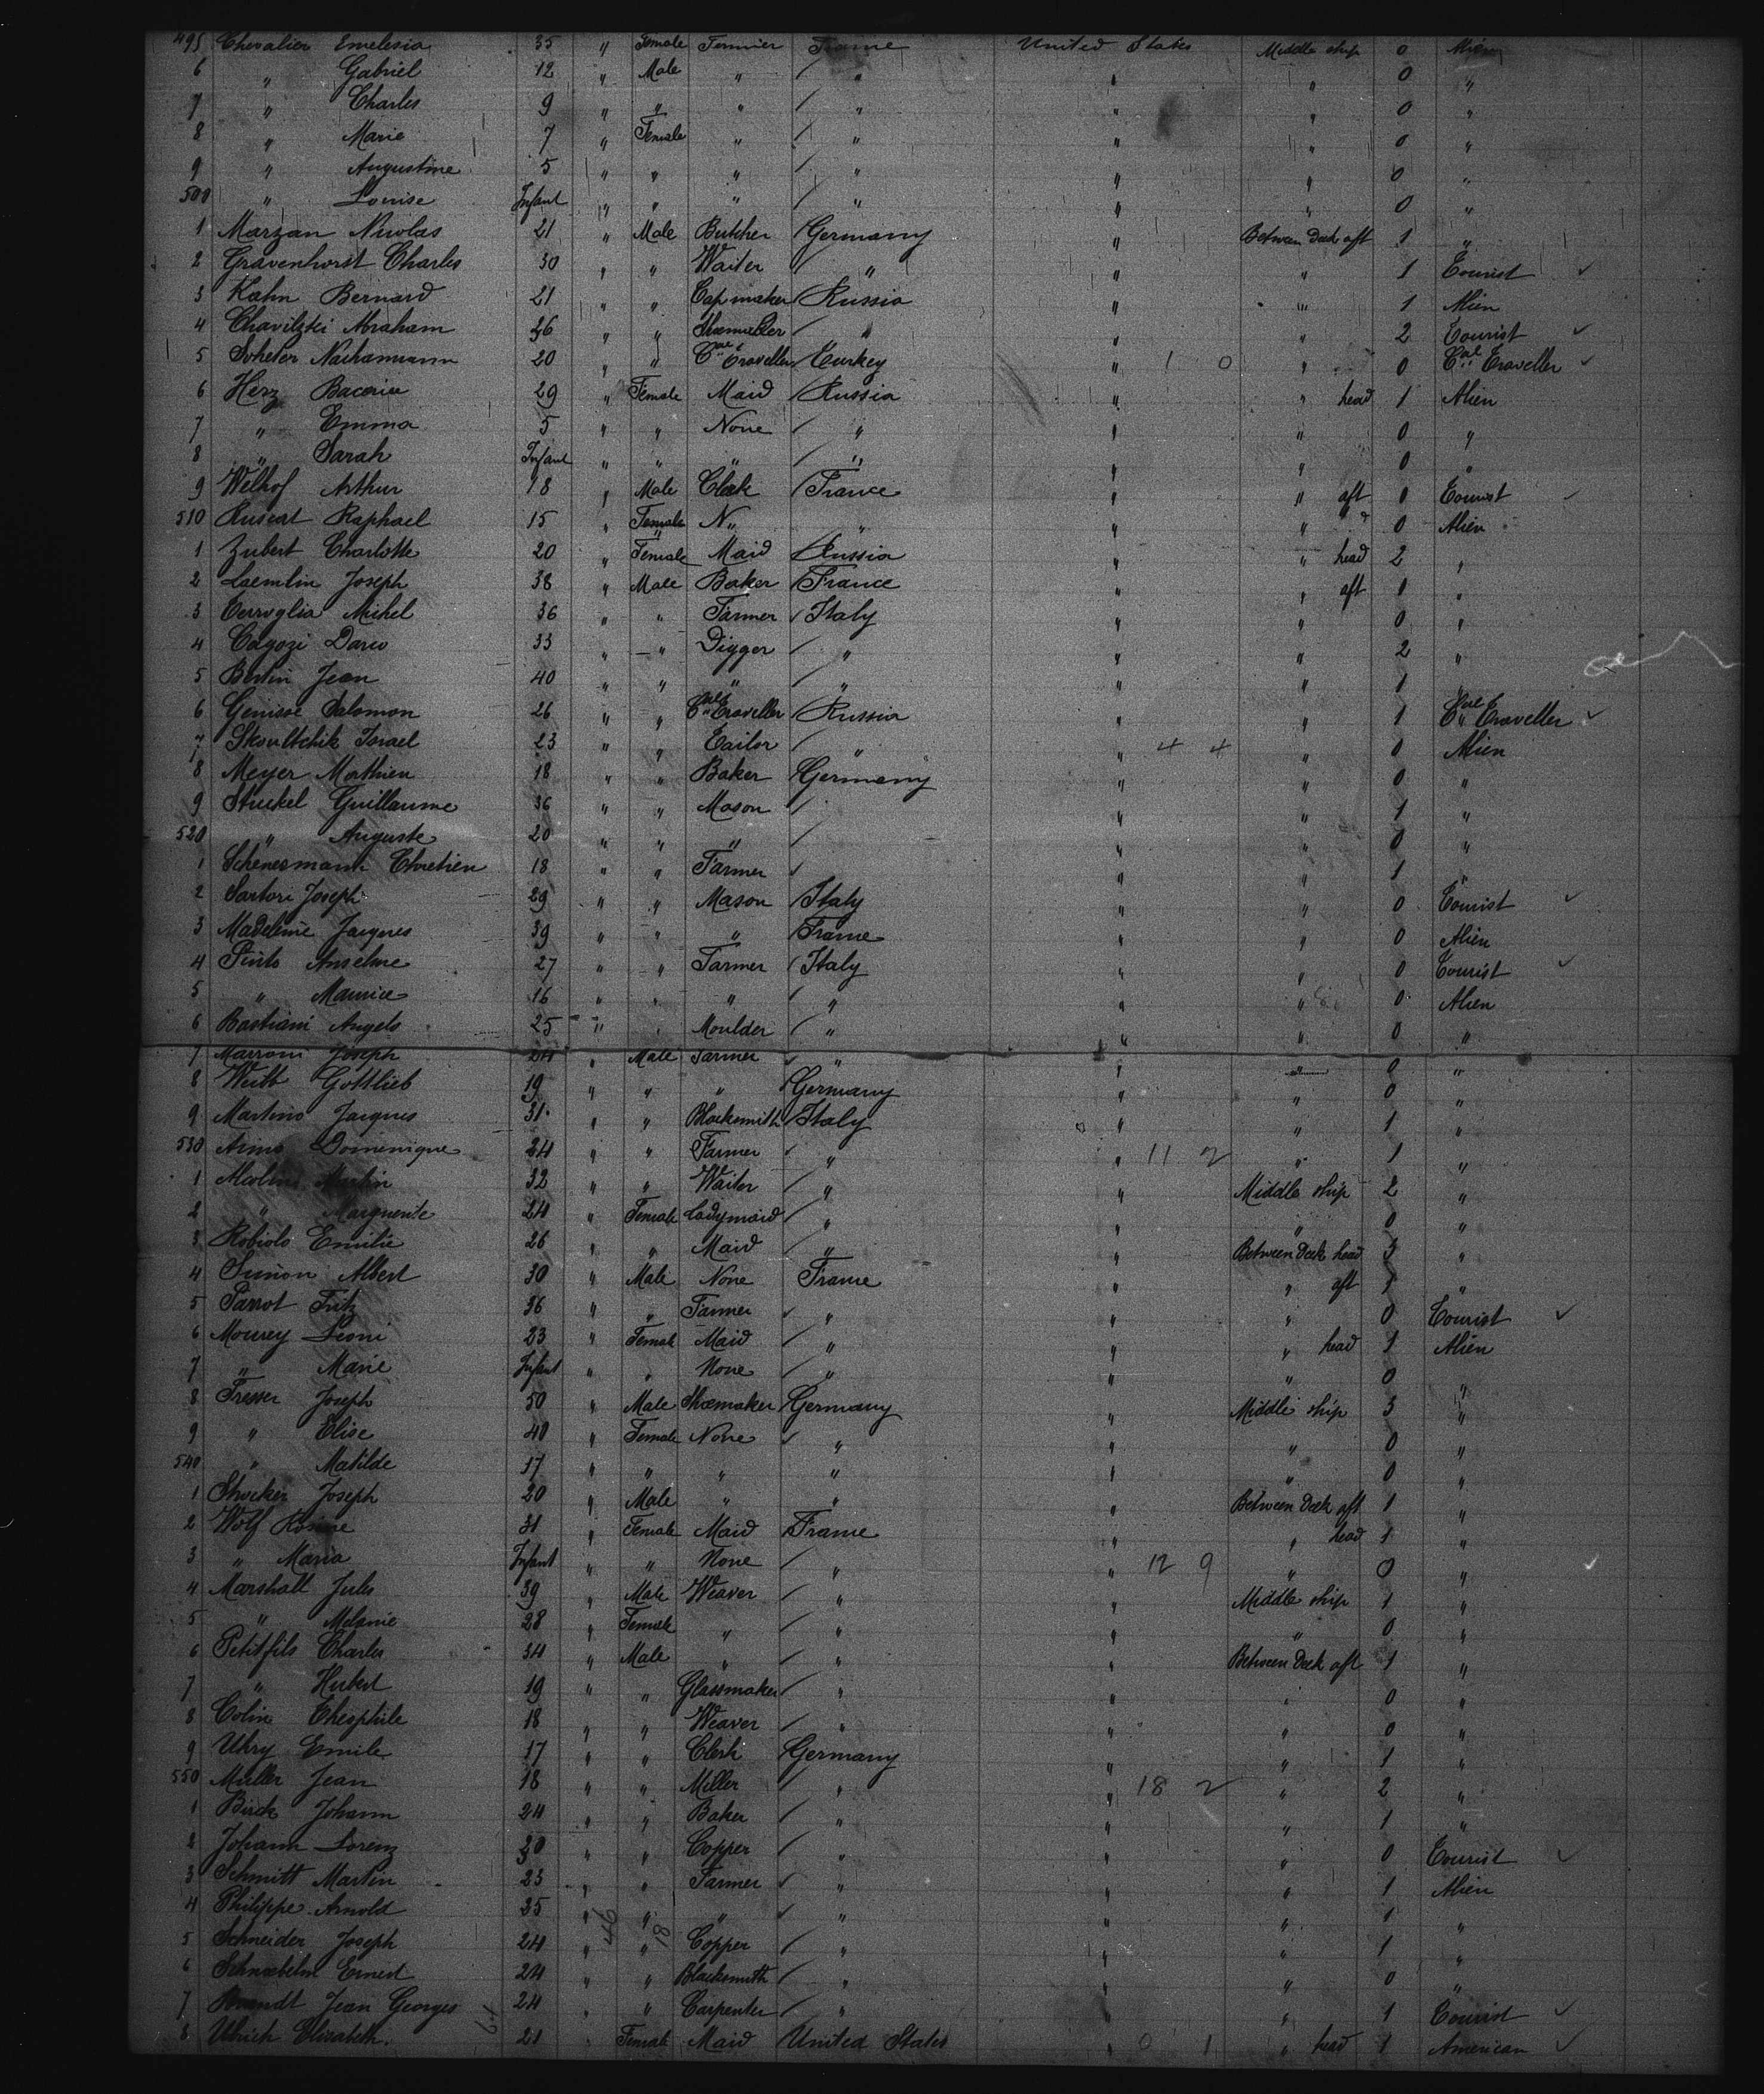 495 Chevalier Emelesia 35 " Female Farmier France United States Middle ship 0 Alien
6 " Gabriel 12 " Male " / " " " 0 "
7 " Charles 9 " " " / " " " 0 "
8 " Marie 7 " Female " / " " " 0 "
9 " Augustine 5 " " " / " " " 0 "
500 " Louise Infant " " " / " " " 0 "
1 Marzan Nicolas 21 " Male Butcher Germany " Between Deck aft 1 "
2 Gravenhorst Charles 30 " " Waiter / " " " 1 Tourist ✓
3 Kahn Bernard 21 " " Cap maker / Russia " " 1 Alien
4 Chavilzki Abraham 26 " " / " " " 2 Tourist ✓
5 20 " " Cial Traveller / Turkey " 1 0 " 0 Cial Traveller ✓
6 Herz 29 " Female Maid / Russia " " head 1 Alien
7 " Emma 5 " " None / " " " 0 "
8 " Sarah Infant " " " / " " " 0 "
9 Welhof Arthur 18 " Male Clerk / France " " aft 0 Tourist ✓
510 Ruscat Raphael 15 " Female N" " " " 0 Alien
1 Zubert Charlotte 20 " Female Maid / Russia " " head 2 "
2 Laemlin Joseph 38 " Male Baker / France " " aft 1 "
3 Cerroglia Michel 36 " " Farmer / Italy " " 0 "
4 Cagozi Dario 33 " " Digger / " " " 2 "
5 Bertin Jean 40 " " " / " " " 1 "
6 Genisse Salomon 26 " " Cial Traveller / Russia " " 1 Cial Traveller ✓
7 Skoultchik Israel 23 " " Tailor / " " 4 4 " 0 Alien
8 Meyer Mathieu 18 " " Baker / Germany " " 0 "
9 Stuckel Guillaume 36 " " Mason / " " 1 "
520 " Auguste 20 " " " / " " 0 "
1 Schenesmann Chretien 18 " " Farmer / " " 1 "
2 Sartori Joseph 29 " " Mason / Italy " " 0 Tourist ✓
3 Madeleine Jacques 39 " " " / France " " 0 Alien
4 Pinto Anselme 27 " " Farmer / Italy " " 0 Tourist ✓
5 " Maurice 16 " " " / " " " 0 Alien
6 Bastiani Angelo 25 " " Moulder / " " " 0 "
7 Marroni Joseph 24 " Male Farmer / " " " 0 "
8 Weibb Gottlieb 19 " " " / Germany " " 0 "
9 Martino Jacques 31 " " Blacksmith / Italy " " 1 "
530 Arino Domenique 24 " " Farmer / " " 11 2 " 1 "
1 32 " " Waiter / " " Middle ship 2 "
2 " Marguerite 24 " Female Ladymaid / " " " 0 "
3 Robiolo Emilie 26 " " Maid / " " Between Deck head 3 "
4 Simon Albert 30 " Male None France " " aft 1 "
5 Parrot Fritz 36 " " Farmer / " " " 0 Tourist ✓
6 Mourey Leoni 23 " Female Maid / " " " head 1 Alien
7 " Marie Infant " " None / " " " 0 "
8 Fresser Joseph 50 " Male Shoemaker / Germany " Middle ship 3 "
9 " Elise 40 " Female None / " " " 0 "
540 " Matilde 17 " " " " " " 0 "
1 Stocker Joseph 20 " Male " " " Between Deck aft 1 "
2 Wolf Rosine 31 " Female Maid France " " head 1 "
3 " Maria Infant " " None / " " 12 9 " 0 " ✓
4 Marshall Jules 39 " Male Weaver / " " Middle ship 1 "
5 " Melanie 28 " Female " / " " " 0 "
6 Petitfils Charles 34 " Male " / " " Between Deck aft 1 "
7 " Hubert 19 " " Glassmaker / " " " 0 "
8 Colin Theophile 18 " " Weaver / " " " 0 "
9 Uhry Emile 17 " " Clerk Germany " " 1 "
550 Muller Jean 18 " " Miller / " " 18 2 " 2 "
1 Birck Johann 24 " " Baker / " " " 1 "
2 Johann Lorenz 30 " " Copper / " " " 0 Tourist ✓
3 Schmitt Martin 23 " " Farmer / " " " 1 Alien
4 Philippe Arnold 25 " " " / " " " 1 "
5 Schneider Joseph 24 " 46 " 18 Copper / " " " 1 "
6 Schnebelin Ernest 24 " " Blacksmith / " " " 0 "
7 Brandt Jean Georges 24 " " Carpenter / " " " 1 Tourist ✓
8 Ulrich Elisabeth 21 " Female Maid United States " 0 1 " head 1 American ✓